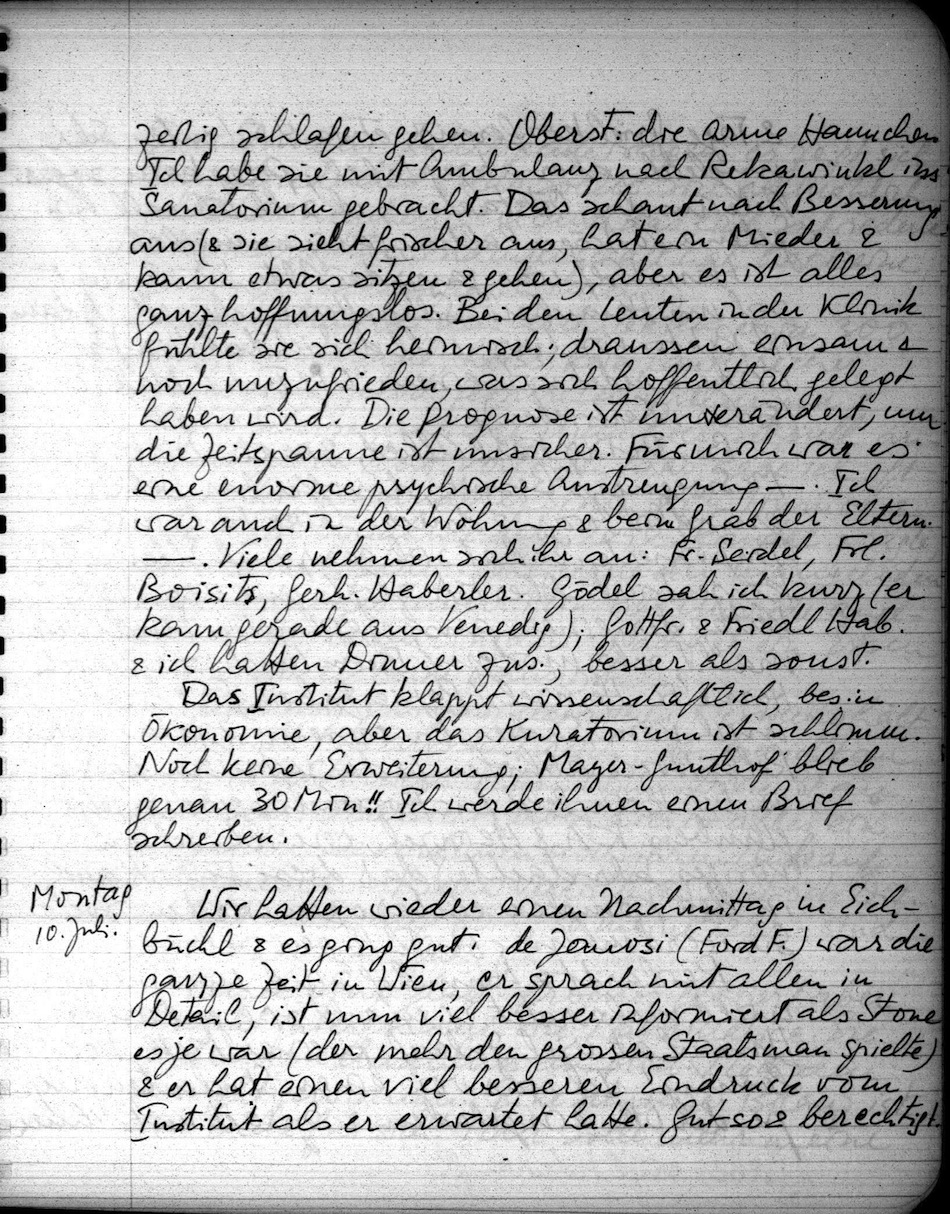 zeitig schlafen gehen. Oberst: die arme Hannchen
Ich habe sie mit Ambulanz nach Rekawinkl ins
Sanatorium gebracht. Das schaut nach Besserung
aus (& sie sieht frischer aus, hat ein Mieder &
kann etwas sitzen & gehen), aber es ist alles
ganz hoffnungslos. Bei den Leuten in der Klinik
fühlte sie sich heimisch; draussen einsam &
noch unzufrieden, was sich hoffentlich gelegt
haben wird. Die Prognose ist unverändert, nur
die Zeitspanne ist unsicher. Für mich war es
eine enorme psychische Anstrengung —. Ich
war auch in der Wohnung & beim Grab der Eltern.
—. Viele nehmen sich ihr an: Fr. Seidel, Frl.
Boisits, Gerh. Haberler. Gödel sah ich kurz (er
kam gerade aus Venedig); Gottfr. & Friedl Hab.
& ich hatten Dinner zus., besser als sonst.
Das Institut klappt wissenschaftlich, bes. in
Ökonomie, aber das Kuratorium ist schlimm.
Noch keine Erweiterung; Mayer-Gunthof blieb
genau 30 Min!! Ich werde ihnen einen Brief
schreiben.
Montag
10. Juli.
Wir hatten wieder einen Nachmittag in Eich-
büchl & es ging gut. de Janosi (Ford F.) war die
ganze Zeit in Wien, er sprach mit allen in
Detail, ist nun viel besser informiert als Stone
es je war (der mehr den grossen Staatsman spielte)
& er hat einen viel besseren Eindruck vom
Institut als er erwartet hatte. Gut so & berechtigt.